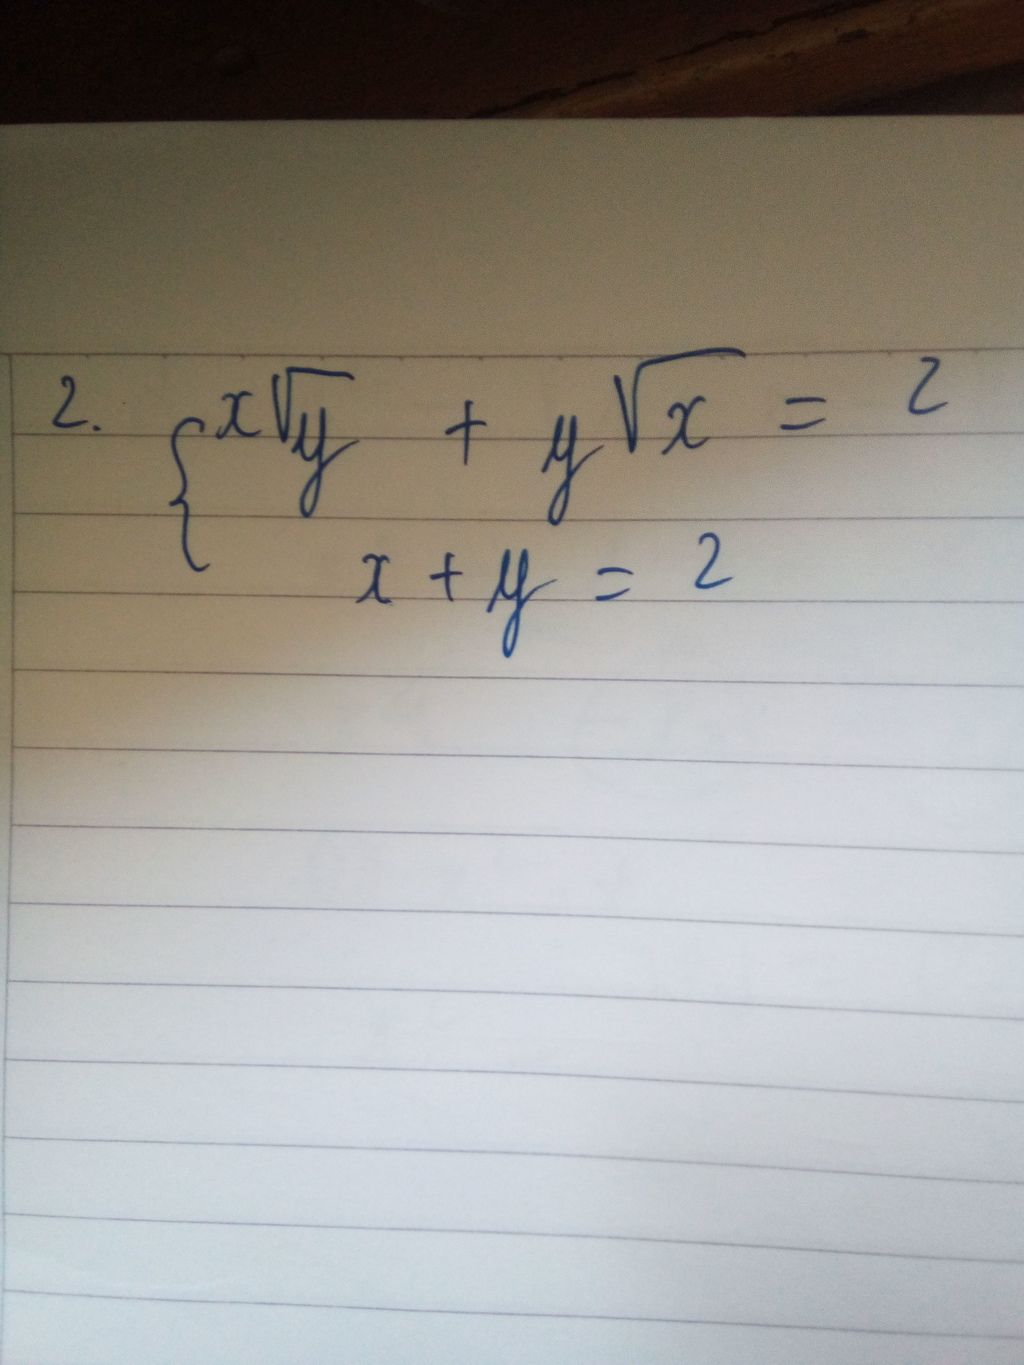 2. { x√y + y√x = 2
x + y = 2